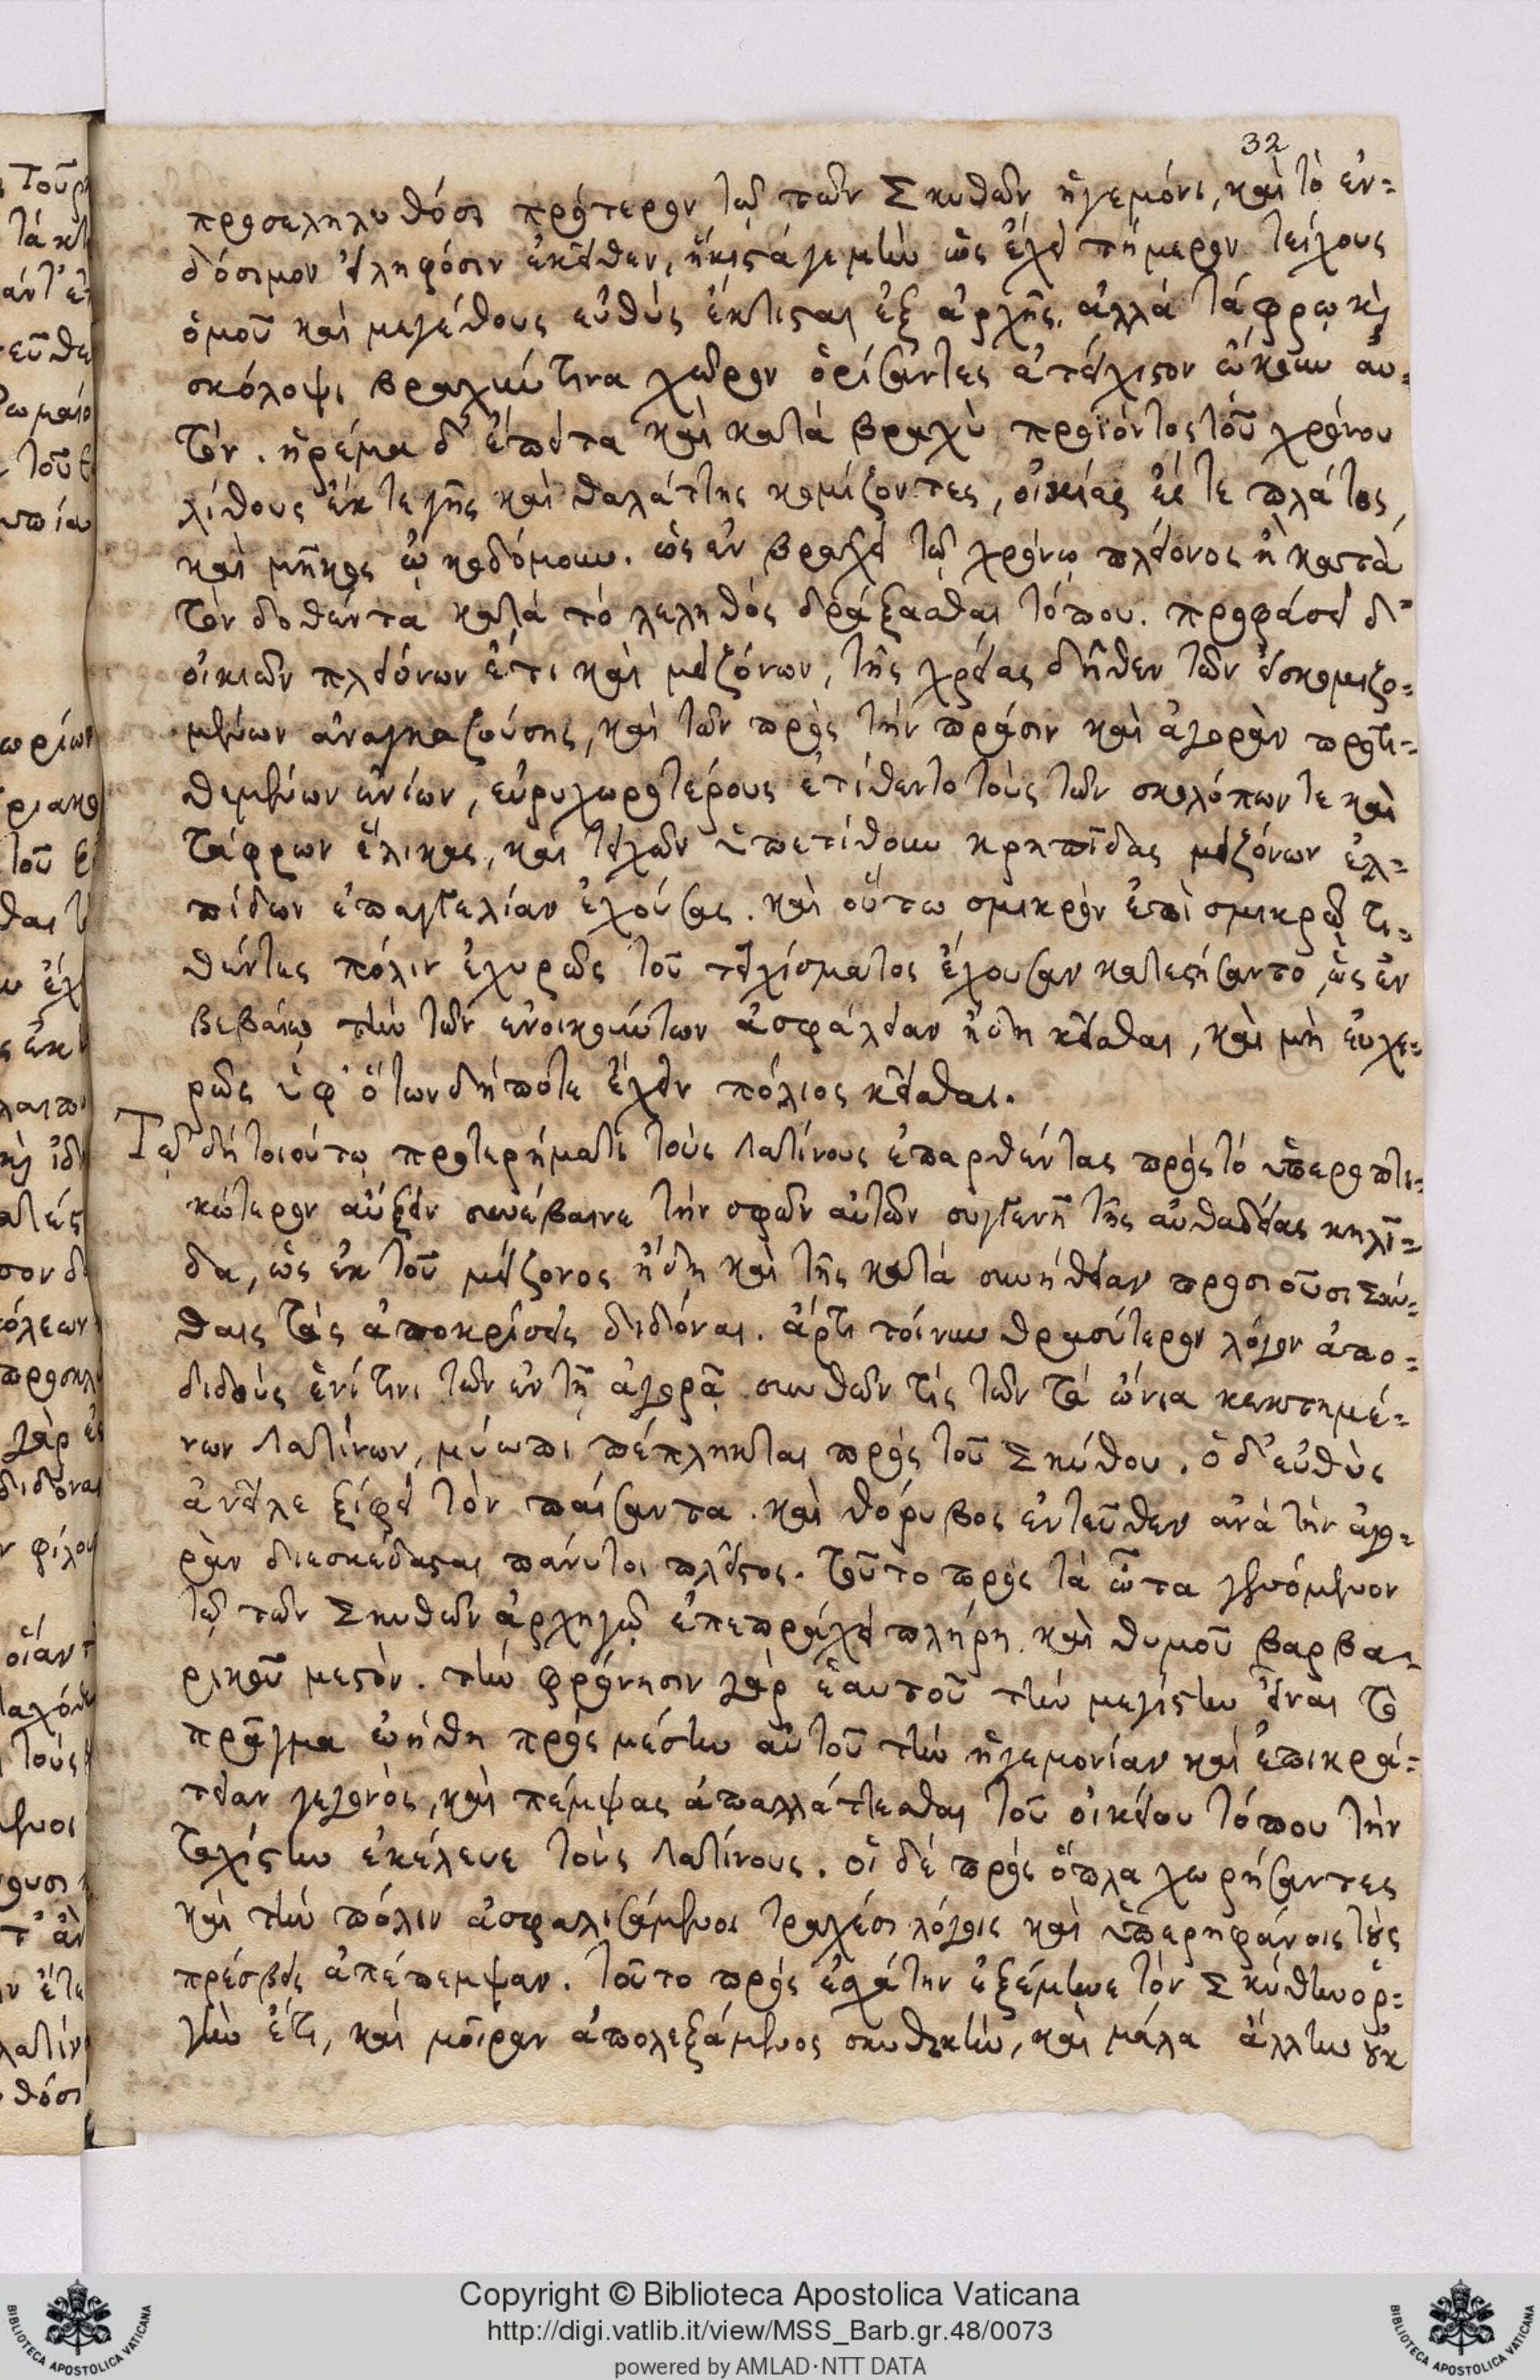 32
προσεληλυθόσι πρότερον τῷ τῶν Σκυθῶν ἡγεμόνι, καὶ τὸ ἐν-
δόσιμον εἰληφόσιν ἐκεῖθεν, ἥκιστά γε μὴν ὡς ἔχει τήμερον τείχους
ὁμοῦ καὶ μεγέθους εὐθὺς ἔκτισται ἐξ ἀρχῆς. ἀλλὰ τάφρῳ καὶ
σκόλοψι βραχύν τινα χῶρον ὁρίσαντες ἀτείχιστον ᾤκουν αὐ-
τόν. ἠρέμα δ' ἔπειτα καὶ κατὰ βραχὺ προϊόντος τοῦ χρόνου
λίθους ἔκ τε γῆς καὶ θαλάττης κομίζοντες, οἰκίας ἔς τε πλάτος,
καὶ μῆκος ᾠκοδόμουν. ὡς ἐν βραχεῖ τῷ χρόνῳ πλείονος ἢ κατὰ
τὸν δοθέντα κατὰ τὸ λεληθὸς δράξασθαι τόπου. προφάσει δ'
οἰκιῶν πλειόνων ἔτι καὶ μειζόνων, τῆς χρείας δῆθεν τῶν εἰσκομιζο-
μένων ἀναγκαζούσης, καὶ τῶν πρὸς τὴν πρᾶσιν καὶ ἀγορὰν προτι-
θεμένων ὠνίων, εὐρυχωροτέρους ἐτίθεντο τοὺς τῶν σκολόπων τε καὶ
τάφρων ἕλικας, καὶ τειχῶν ὑπετίθουν κρηπῖδας μειζόνων ἐλ-
πίδων ἐπαγγελίαν ἐχούσας. καὶ οὕτω σμικρὸν ἐπὶ σμικρῷ τι-
θέντες πόλιν ἐχυρῶς τοῦ τειχίσματος ἔχουσαν κατεστήσαντο, ὡς ἐν
βεβαίῳ τὴν τῶν ἐνοικούντων ἀσφάλειαν ἤδη κεῖσθαι, καὶ μὴ εὐχε-
ρῶς ὑφ' ὅτων δήποτε ἔχειν πόλιος κεῖσθαι.
Τῷ δὴ τοιούτῳ προτερήματι τοὺς Λατίνους ἐπαρθέντας πρὸς τὸ ὑπεροπτι-
κώτερον αὔξειν συνέβαινε τὴν σφῶν αὐτῶν συγγενῆ τῆς αὐθαδείας κηλῖ-
δα, ὡς ἐκ τοῦ μείζονος ἤδη καὶ τῆς κατὰ συνήθειαν προσιοῦσι Σκύ-
θαις τὰς ἀποκρίσεις διδόναι. ἄρτι τοίνυν θρασύτερον λόγον ἀπο-
διδοὺς ἑνί τινι τῶν ἐν τῇ ἀγορᾷ σκυθῶν τὶς τῶν τὰ ὤνια κεκτημέ-
νων Λατίνων, μύωπι πέπληκται πρὸς τοῦ Σκύθου. ὁ δ' εὐθὺς
ἀνεῖλε ξίφει τὸν παίσαντα. καὶ θόρυβος ἐντεῦθεν ἀνὰ τὴν ἀγο-
ρὰν διεσκέδασται πάντοι πλεῖστος. τοῦτο πρὸς τὰ ὦτα γενόμενον
τῷ τῶν Σκυθῶν ἀρχηγῷ ἐπεπράχει πλήρη καὶ θυμοῦ βαρβα-
ρικοῦ μεστόν. τὴν φρόνησιν γὰρ ἑαυτοῦ τὴν μεγίστην εἶναι τὸ
πρᾶγμα ᾠήθη πρὸς μέσην αὐτοῦ τὴν ἡγεμονίαν καὶ ἐπικρά-
τειαν γεγονός, καὶ πέμψας ἀπαλλάττεσθαι τοῦ οἰκείου τόπου τὴν
ταχίστην ἐκέλευε τοὺς Λατίνους. οἱ δὲ πρὸς ὅπλα χωρήσαντες
καὶ τὴν πόλιν ἀσφαλισάμενοι τραχέσι λόγοις καὶ ὑπερηφάνοις τοὺς
πρέσβεις ἀπέπεμψαν. τοῦτο πρὸς ἐσχάτην ἐξέμηνε τὸν Σκύθην ὀρ-
γὴν ἔτι, καὶ μοῖραν ἀπολεξάμενος σκυθικήν, καὶ μάλα ἄλλην οὐκ
Copyright © Biblioteca Apostolica Vaticana
http://digi.vatlib.it/view/MSS_Barb.gr.48/0073
powered by AMLAD·NTT DATA
BIBLIOTECA APOSTOLICA VATICANA
BIBLIOTECA APOSTOLICA VATICANA